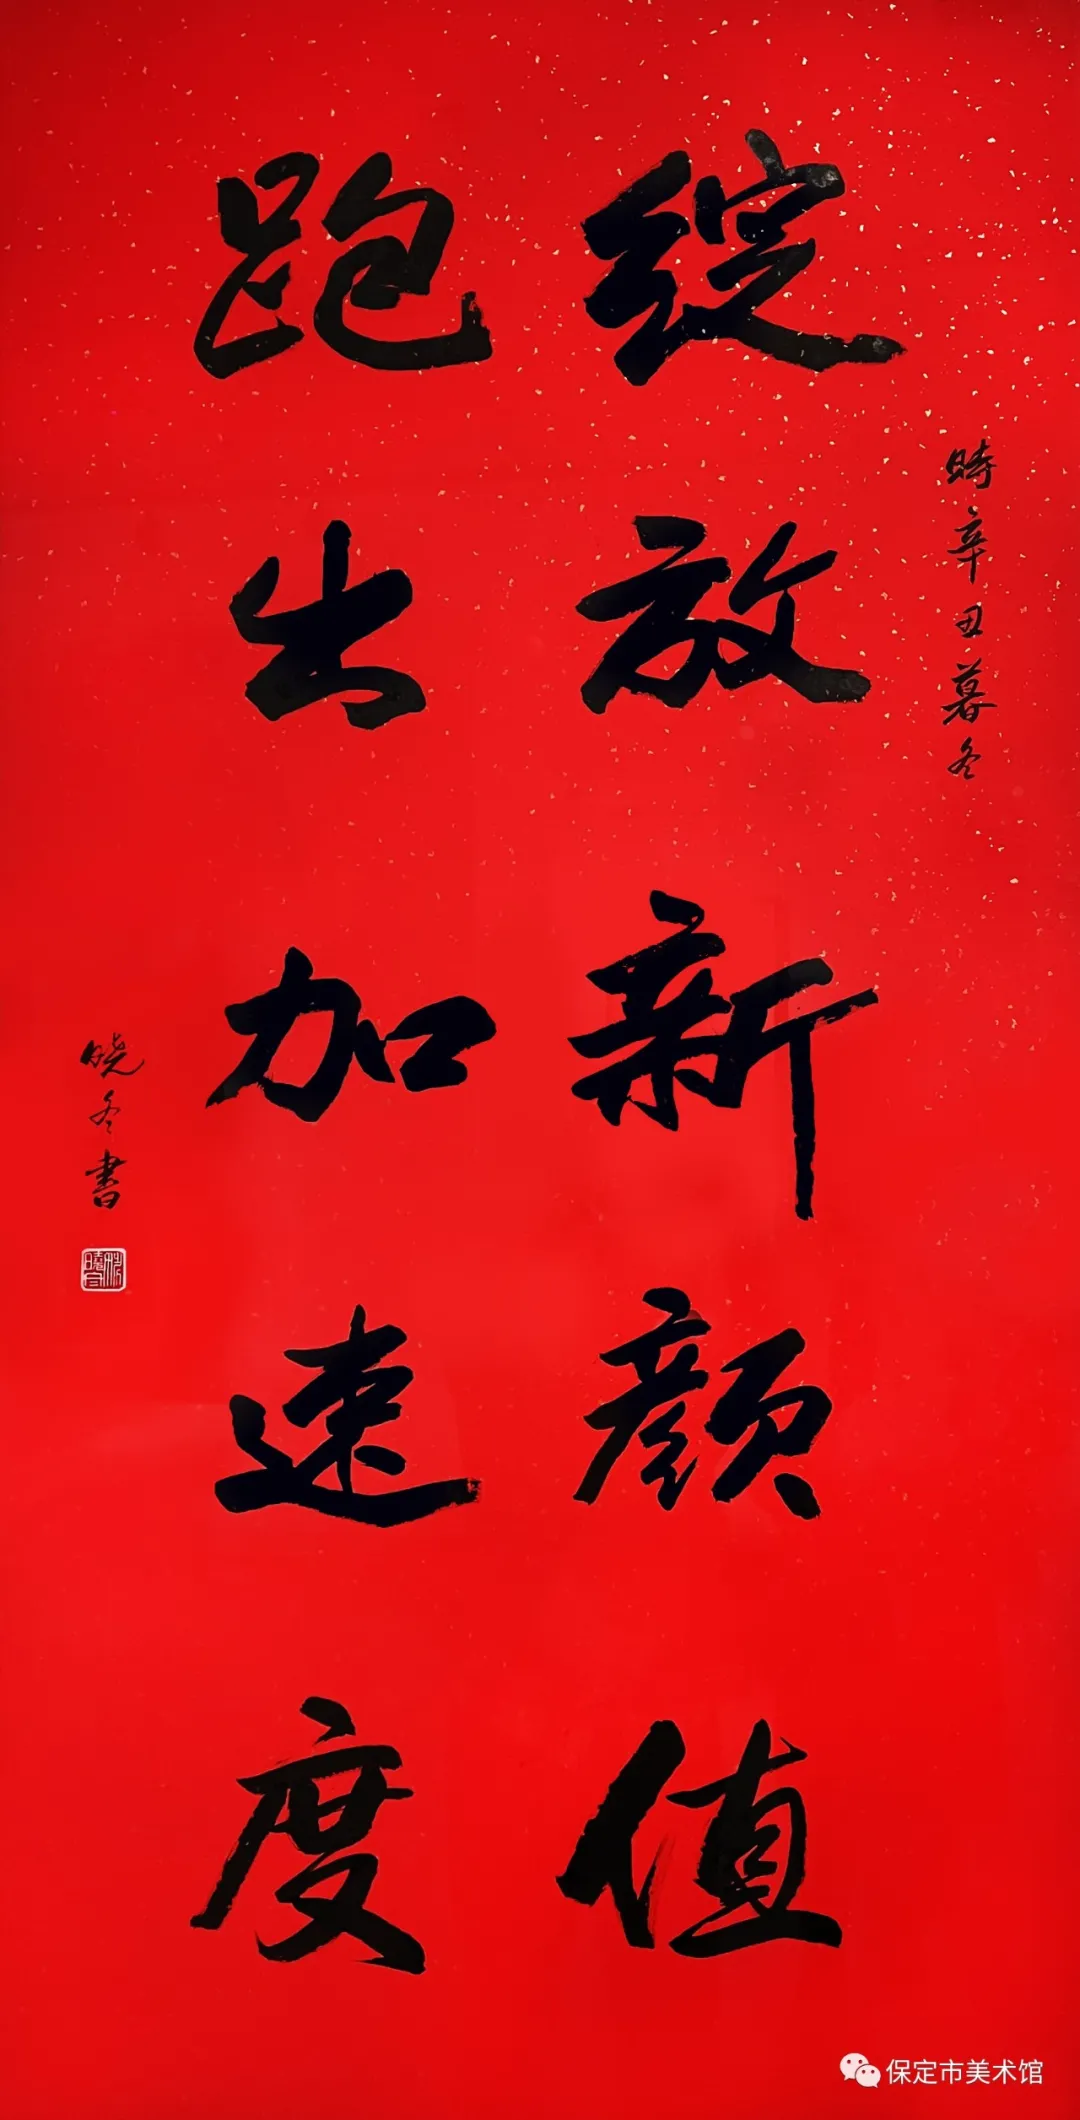 時辛丑暮冬
绽放新颜值
跑出加速度
晓冬書
保定市美术馆